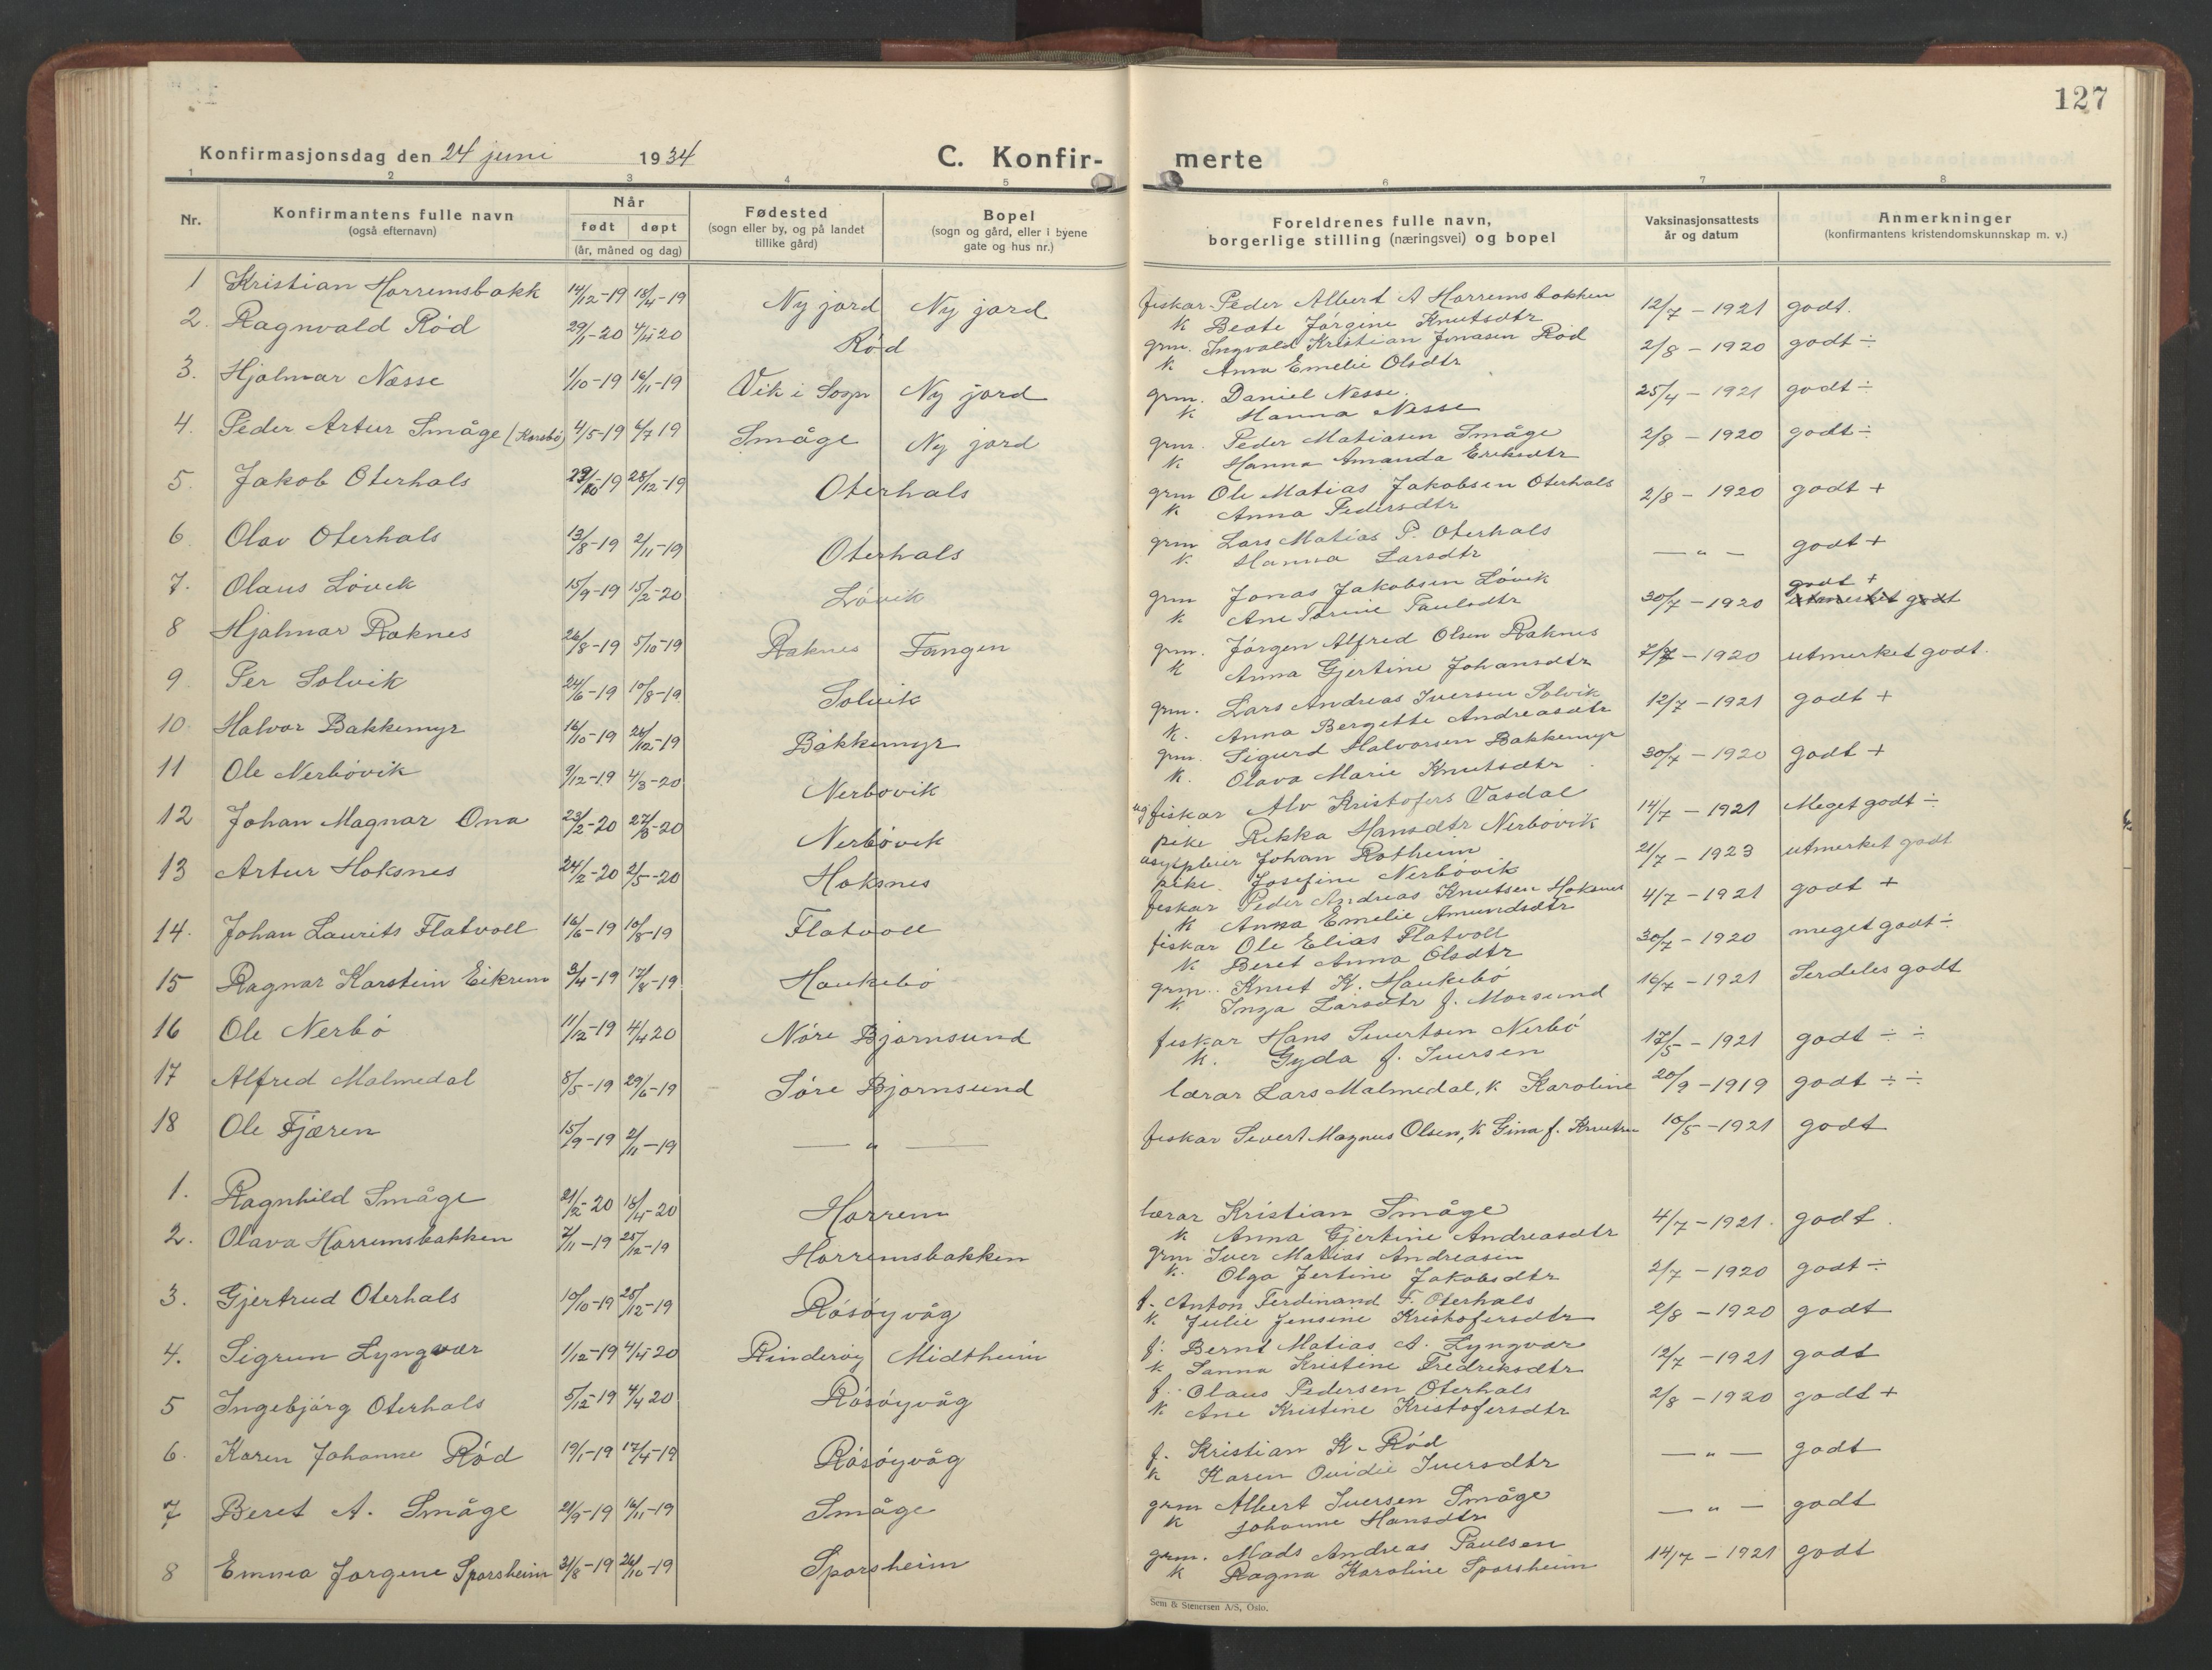 127
Konfirmasjonsdag den 24 juni 1934
C. Konfir- merte
1 2 3 4 5 6 7 8
Nr. Konfirmantens fulle navn (også efternavn) Når født døpt (år, måned og dag) Fødested (sogn eller by, og på landet tillike gård) Bopel (sogn og gård, eller i byene gate og hus nr.) Foreldrenes fulle navn, borgerlige stilling (næringsvei) og bopel Vaksinasjonsattests år og datum Anmerkninger (konfirmantens kristendomskunnskap m. v.)
1 Kristian Harremsbakk 14/12-19 18/4-19 Ny jord Ny jord fiskar Peder Albert A Harremsbakken 12/7 - 1921 godt.
k Beate Jørgine Knutsdtr
2. Ragnvald Rød 29/1-20 4/4 20 Rød grm. Ingvald Kristian Jonasen Rød 2/8 - 1920 godt ÷
k. Anna Emelie Olsdtr
3. Hjalmar Nesse 1/10-19 16/11-19 Vik i Sogn Ny jord grm. Daniel Nesse. 25/4 - 1921 godt ÷
k Hanna Nesse
4. Peder Artur Småge (Korsbø) 4/5-19 6/7 19 Småge Ny jord grm. Peder Matiasen Småge 2/8 - 1920 godt ÷
k. Hanna Amanda Eriksdtr
5. Jakob Oterhals 29/10-19 28/12-19 Oterhals grm Ole Matias Jakobsen Oterhals 2/8 - 1920 godt +
k Anna Pedersdtr
6. Olav Oterhals 13/8-19 2/11-19 Oterhals grm Lars Matias P. Oterhals — " — godt +
k. Hanna Larsdtr
7. Olaus Løvik 15/9-19 15/2-20 Løvik grm Jonas Jakobsen Løvik 30/7 - 1920 godt + utmerket godt
k Ane Tomine Paulsdtr
8 Hjalmar Raknes 26/8-19 5/10-19 Raknes Tangen grm. Jørgen Alfred Olsen Raknes 7/7 - 1920 utmerket godt.
k Anna Gjertine Johansdtr
9. Per Solvik 24/6-19 10/8-19 Solvik grm. Lars Andreas Iversen Solvik 12/7 - 1921 godt +
k. Anna Bergette Andreasdtr
10. Halvor Bakkemyr 16/10-19 26/12-19 Bakkemyr grm. Sigurd Halvorsen Bakkemyr 30/7 - 1920 godt +
k. Olava Marie Knutsdtr
11 Ole Nerbøvik 9/12-19 4/3-20 Nerbøvik ug fiskar Alv Kristofers Vasdal 14/7 - 1921 Meget godt ÷
pike Rikka Hansdtr Nerbøvik
12 Johan Magnar Ona 23/2-20 27/3-20 Nerbøvik asylpleier Johan Rotheim 21/7 - 1923 utmerket godt
pike. Josefine Nerbøvik
13 Artur Hoksnes 24/2-20 2/5-20 Hoksnes fiskar Peder Andreas Knutsen Hoksnes 4/7 - 1921 godt +
k Anna Emelie Amundsdtr
14. Johan Laurits Flatvoll 16/6-19 10/8-19 Flatvoll fiskar Ole Elias Flatvoll 30/7 - 1920 meget godt ÷
k Beret Anna Olsdtr
15 Ragnar Karstein Eikrem 3/4-19 17/8-19 Haukebø grm. Knut K. Haukebø 16/7 - 1921 Serdeles godt
k. Inga Larsdtr f. Morsund
16 Ole Nerbø 11/12-19 4/4 20 Nôre Bjornsund fiskar Hans Sivertsen Nerbø 17/5 - 1921 godt ÷ ÷
k. Gyda f. Iversen
17 Alfred Malmedal 8/5-19 29/6-19 Sôre Bjornsund lærar Lars Malmedal, k. Karoline 20/9 - 1919 godt ÷ ÷
18 Ole Fjæren 15/9-19 2/11-19 — " — fiskar Severt Magnus Olsen, k Gina f. Knutsen 10/5 - 1921 godt
1. Ragnhild Småge 21/2-20 18/4-20 Harrem lærar Kristian Småge 4/7 - 1921. godt.
k Anna Gjertine Andreasdtr
2. Olava Harremsbakken 7/11-19 25/12-19 Harremsbakken grm Iver Matias Andreasen 2/7 - 1920 godt ÷
k. Olga Jertine Jakobsdtr
3. Gjertrud Oterhals 10/10-19 26/12-19 Røsøyvåg f. Anton Ferdinand F. Oterhals 2/8 - 1920 godt
k Julie Jensine Kristofersdtr
4. Sigrun Lyngvær 1/12-19 4/4-20 Rinderøy Midtheim f. Bernt Matias A. Lyngvær 12/7 - 1921 godt
k Sanna Kristine Fredriksdtr
5 Ingebjørg Oterhals 5/12-19 4/4 20 Røsøyvåg f. Olaus Pedersen Oterhals 2/8 - 1920 godt +
k Ane Kristine Kristofersdtr
6. Karen Johanne Rød 19/1-19 17/4-19 Røsøyvåg f. Kristian K. Rød — " — godt
k Karen Ovidie Iversdtr
7 Beret A. Småge 21/9-19 16/11-19 Småge grm Albert Iversen Småge — " — godt
k Johanne Hansdtr
8 Emma Jorgene Sporsheim 31/8-19 26/10-19 Sporsheim grm. Mads Andreas Paulsen 14/7 - 1921 godt
k Ragna Karoline Sporsheim
Sem & Stenersen A/S, Oslo.